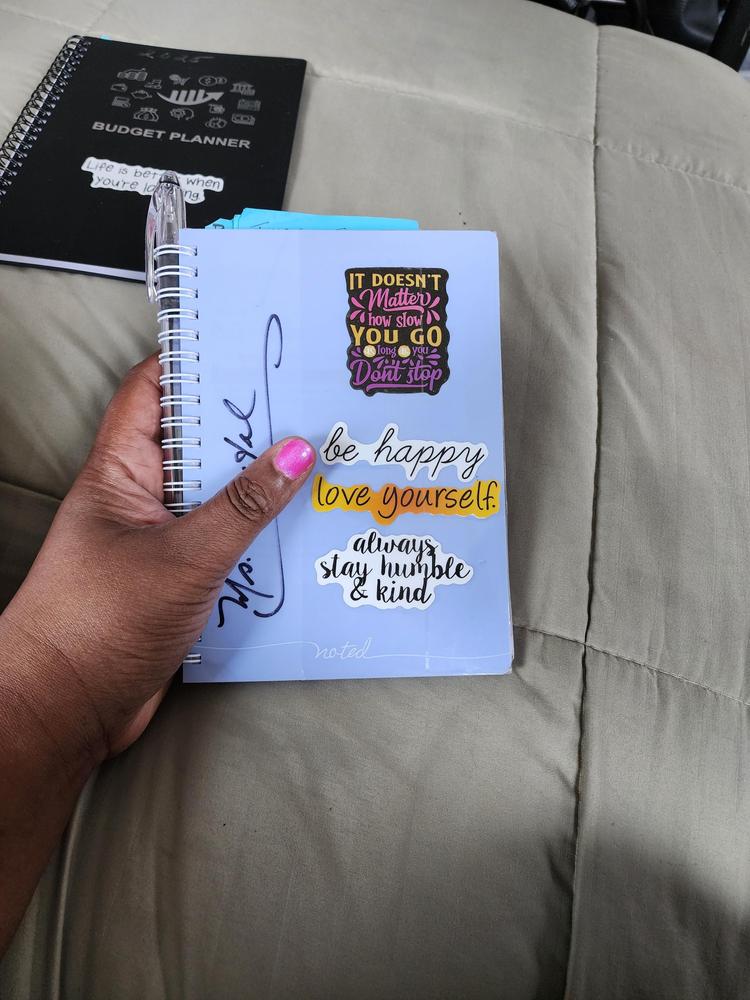 2025
BUDGET PLANNER
Life is when
you're
IT DOESN'T
Matter
how slow
YOU GO
as long as you
Dont stop
be happy
love yourself.
always
stay humble
& kind
Ms.
noted